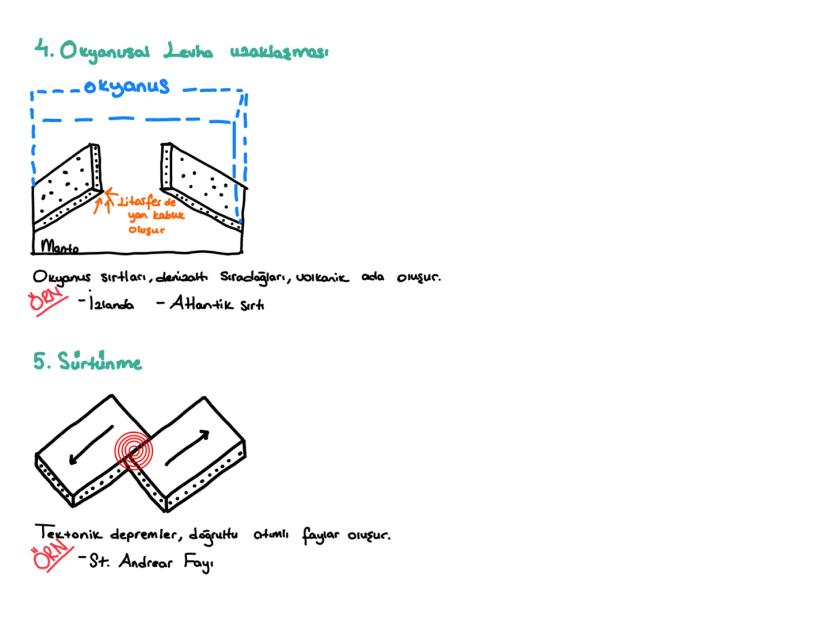 4. Okyanusal Levha uzaklaşması
okyanus
Litosfer de
yan kabuk
oluşur
Manto
Okyanus sırtları, denizaltı sıradağları, volkanik ada oluşur.
ÖRN - İzlanda - Atlantik sırtı
5. Sürtünme
Tektonik depremler, doğrultu atımlı faylar oluşur.
ÖRN - St. Andrear Fayı